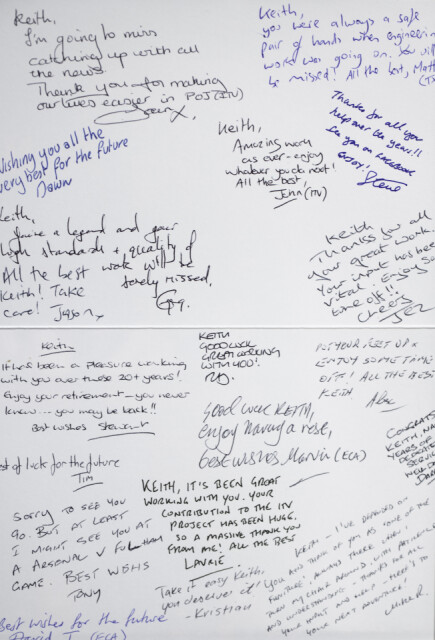 Keith,
I'm going to miss
catching up with all
the news
Thank you for making
our lives easier in POJ (ITV)
Keith,
you were always a safe
pair of hands when engineering
work was going on. You will
be missed! All the best, Matt
Wishing you all the
very best for the future
Dawn
Keith,
Amazing work
as ever - enjoy
whatever you do next!
All the best,
Jenn (ITV)
Thanks for all your
help over the years!!
See you on FACEBOOK
Enjoy!
Steve
Keith,
You're a legend and your
high standards + quality of
work will be
sorely missed,
Greg.
All the best
Keith! Take
care! Jason,
Keith
Thanks for all
your great work.
Your input has been
vital. Enjoy
time off!!
Cheers
JEZ
Keith
It has been a pleasure working
with you over these 20+ years!
Enjoy your retirement - you never
know... you may be back!!
Best wishes Stewart
KEITH
GOOD LUCK
GREAT WORKING
WITH YOU!
PUT YOUR FEET UP &
ENJOY SOME TIME
OFF! ALL THE BEST
KEITH
Alex
Good luck KEITH,
enjoy having a rest,
best wishes Marvin (ECA)
CONGRATS
KEITH,
YEARS OF
DEDICATED
SERVICE
WELL DONE
Best of luck for the future
Tim
SORRY TO SEE YOU
GO. BUT AT LEAST
I MIGHT SEE YOU AT
A ARSENAL V FULHAM
GAME. BEST WISHS
TONY
KEITH, IT'S BEEN GREAT
WORKING WITH YOU. YOUR
CONTRIBUTION TO THE ITV
PROJECT HAS BEEN HUGE.
SO A MASSIVE THANK YOU
FROM ME! ALL THE BEST
LAURIE
Take it easy Keith,
you deserve it!
- Kristian
KEITH - I'VE DEPENDED ON
YOU AND THINK OF YOU AS SOME OF THE
FURNITURE. ALWAYS THERE WHEN I
TURN MY CHAIR AROUND, WITH PATIENCE
AND UNDERSTANDING - THANKS FOR ALL
YOUR INPUT AND HELP - HERE'S TO
YOUR NEXT ADVENTURE!
Best wishes for the future
David T. (ECA)